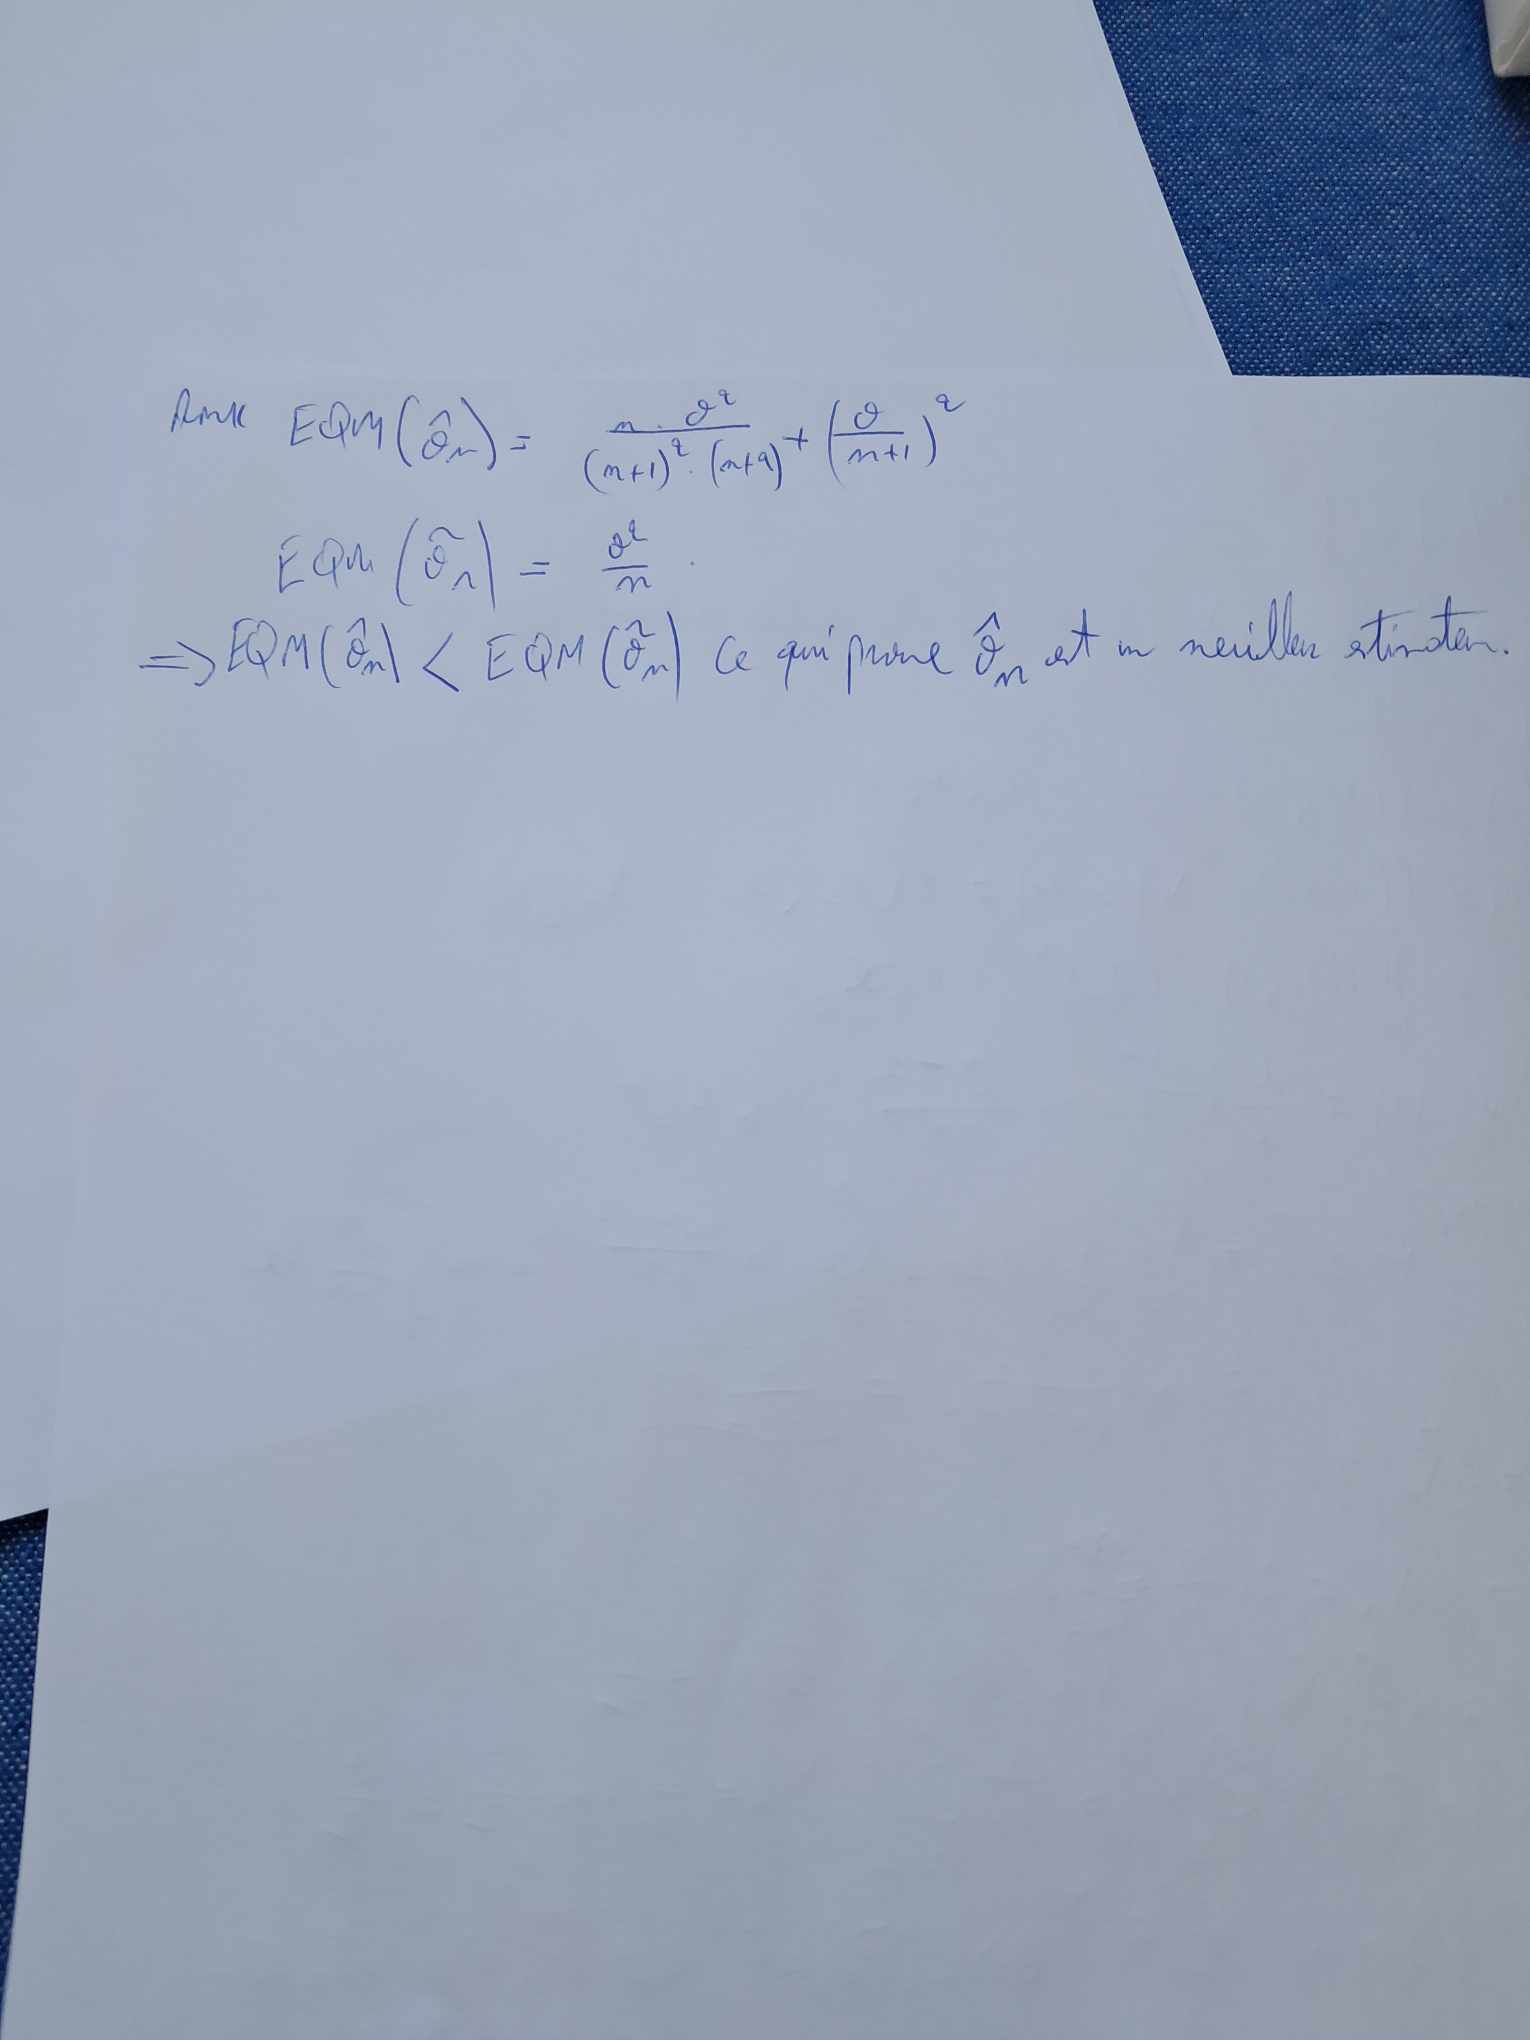 Donc EQM(θ̂n) = n·θ²/((n+1)²·(n+2)) + (θ/(n+1))²
EQM(θ̃n) = θ²/n.
⇒ EQM(θ̂n) < EQM(θ̃n) ce qui prouve θ̂n est un meilleur estimateur.